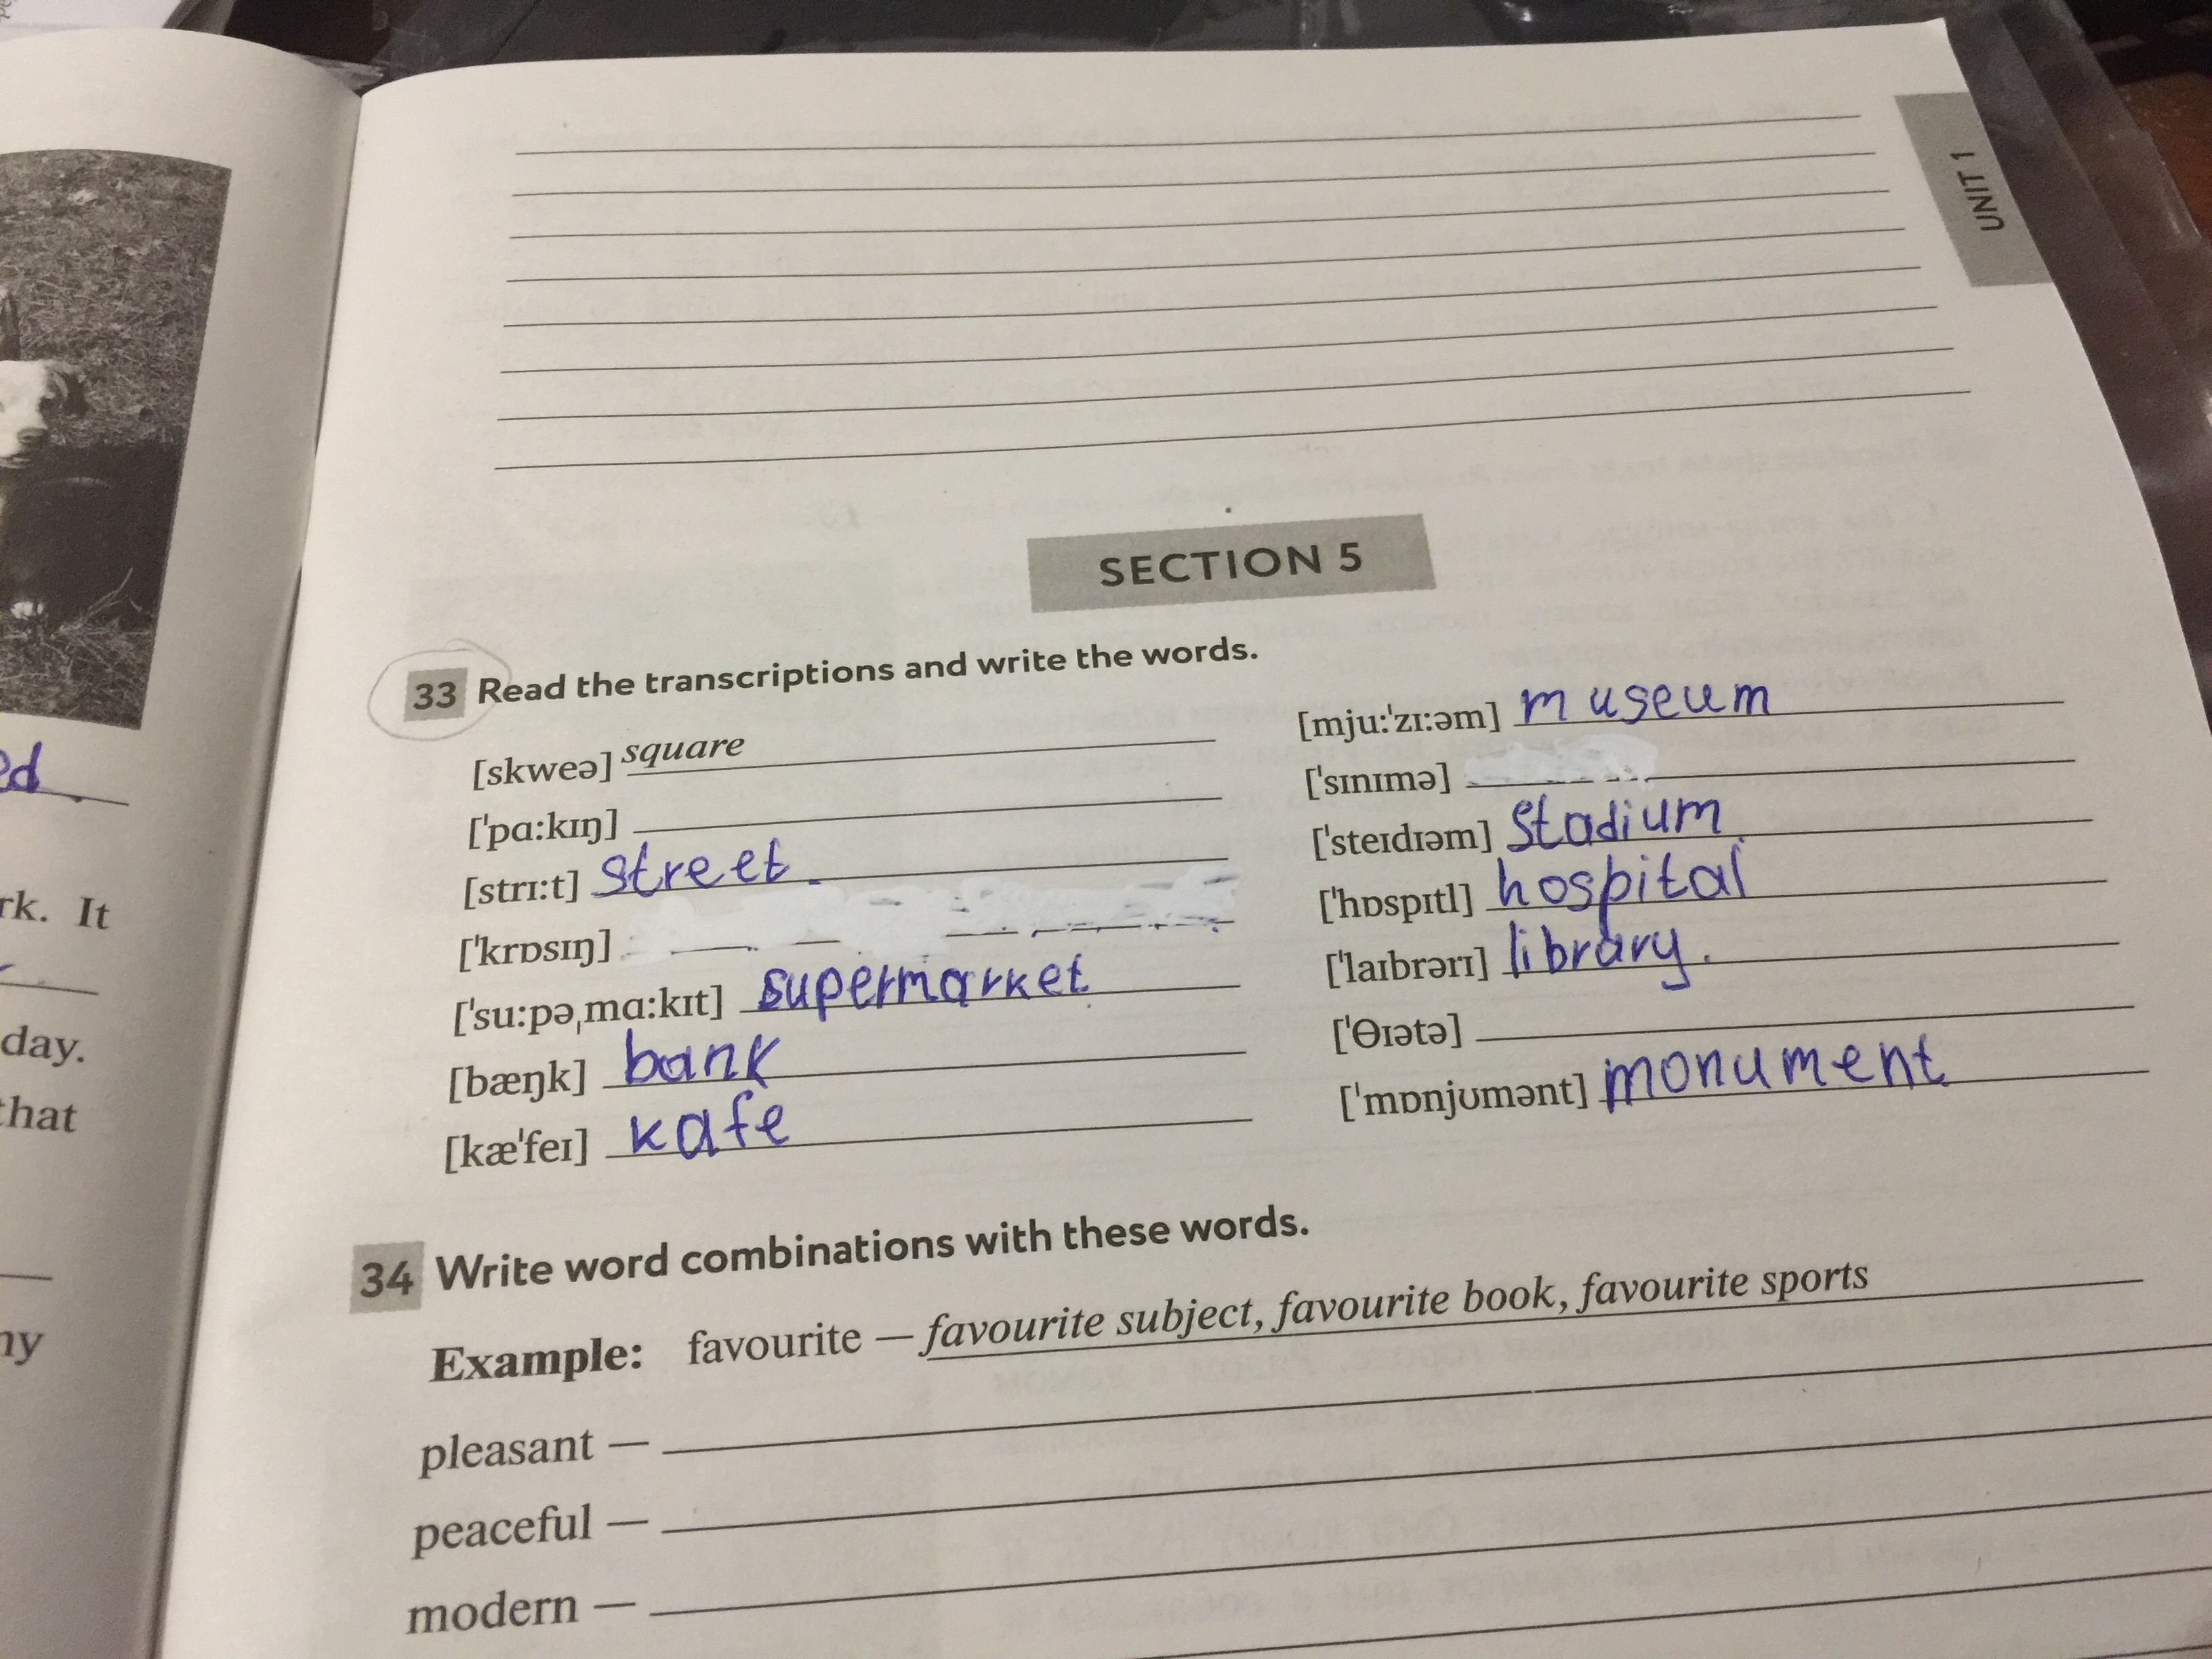 UNIT 1
ed
rk. It
day.
that
ny
SECTION 5
33 Read the transcriptions and write the words.
[skweə] square
['pɑ:kɪŋ]
[strɪ:t] street.
['krɒsɪŋ]
['su:pəˌmɑ:kɪt] supermarket
[bæŋk] bank
[kæ'feɪ] kafe
[mju:'zɪ:əm] museum
['sɪnɪmə]
['steɪdɪəm] stadium.
['hɒspɪtl] hospital
['laɪbrərɪ] library.
['Θɪətə]
['mɒnjʊmənt] monument
34 Write word combinations with these words.
Example: favourite — favourite subject, favourite book, favourite sports
pleasant —
peaceful —
modern —